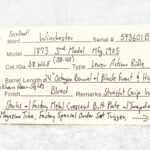 Scarce!
Manf. Winchester Serial # 593601B
Model 1873 3rd Model Mfg. 1905
Ca./Ga. .38 WCF (38-40) Type Lever Action Rifle
Barrel Length 24" Octagon Barrel w/ Blade Front &
Finish Blued Remarks Straight Grip
Stocks w/ Factory Metal Crescent Butt Plate w/
Magazine Tube, Factory Special Order Set Trigger,